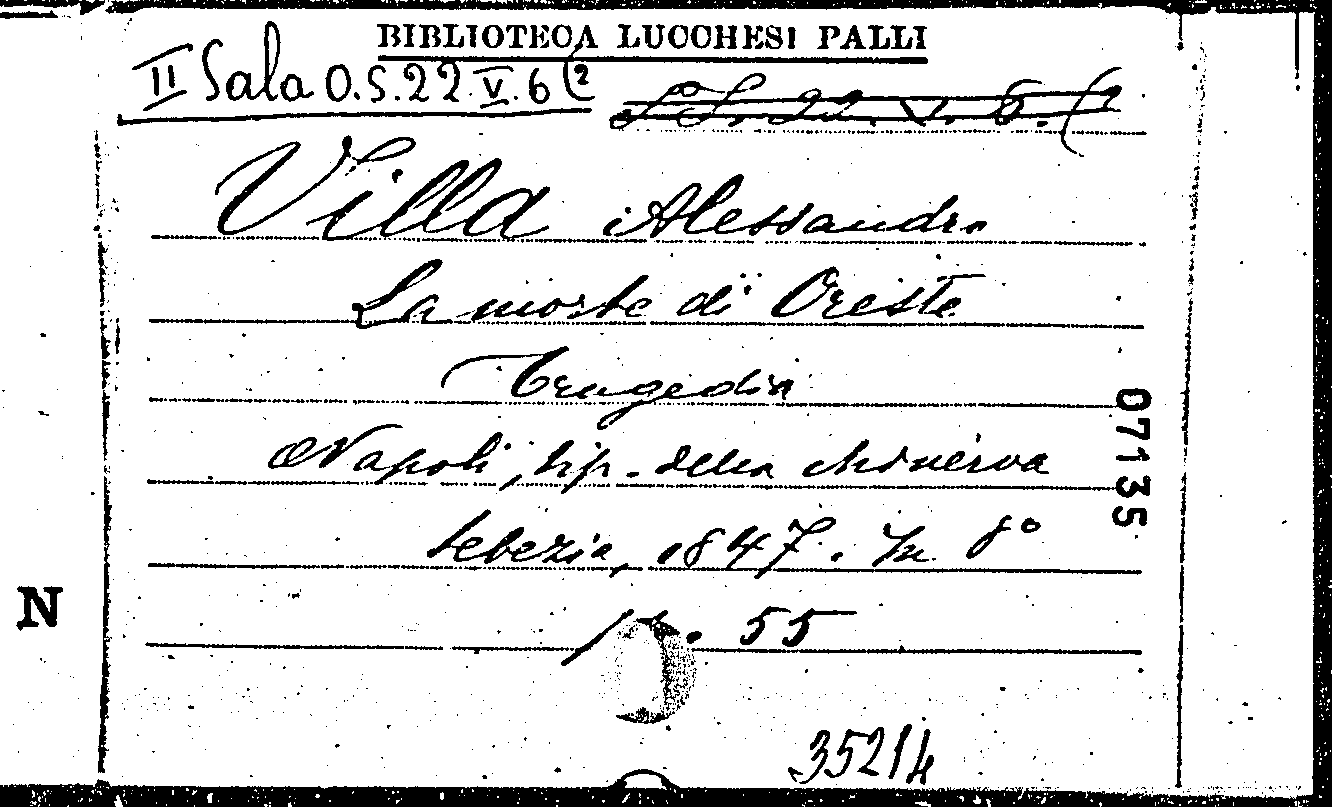 BIBLIOTECA LUCCHESI PALLI
II Sala O.S. 22. V. 6 (2
Sª S. 22. V. 6. (2
Villa Alessandro
La morte di Oreste
Tragedia
Napoli, tip. della Minerva
Sebezia, 1847. In 8º
pp. 55
35214
07135
N